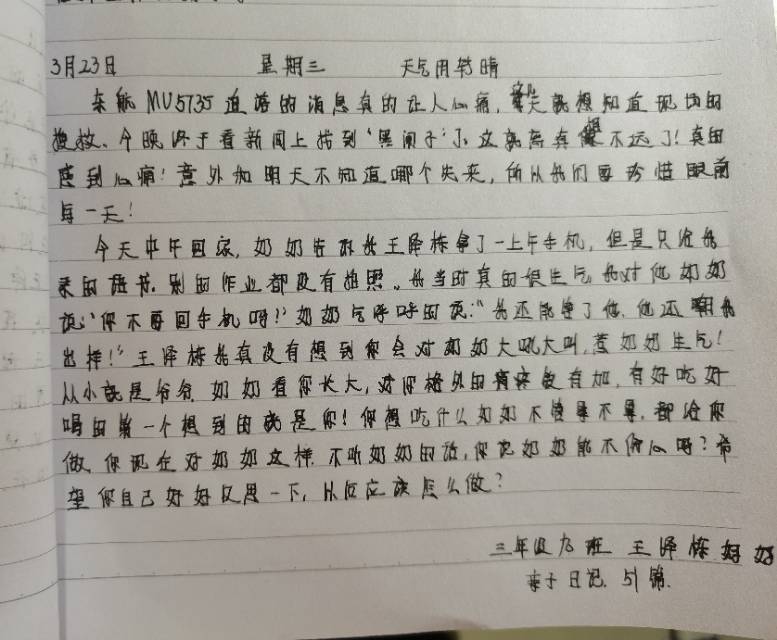 3月23日 星期三 天气阴转晴
东航MU5735追落的消息真的让人心痛,天就想知道现场的
搜救、今晚终于看新闻上找到“黑闸子”了、这就离真不远了!真的
感到心痛!意外和明天不知道哪个先来,所从我们要珍惜眼前
每一天!
今天中午回家,奶奶告诉我王泽栋拿了一上午手机,但是只给我
录的语书.别的作业都没有拍照。我当时真的很生气我对他奶奶
说:“你不要回手机吗?”奶奶气呼呼的说:“我还能拿了他.他还朝我
出样!”王泽栋我真没有想到你会对奶奶大吼大叫.惹奶奶生气!
从小就是爷爷,奶奶看你长大,对你格外的疼爱有加,有好吃好
喝的第一个想到的就是你!你想吃什么奶奶不管早不早.都给你
做,你现在对奶奶这样.不听奶奶的话,你说奶奶能不伤心吗?希
望你自己好好反思一下,从后应该怎么做?
三年级九班 王泽栋妈妈
亲子日记.引锦.